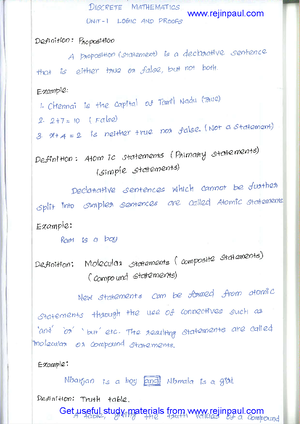 DISCRETE MATHEMATICS
www.rejinpaul.com
UNIT-I LOGIC AND PROOFS
Definition: Proposition
A proposition (statement) is a declarative sentence
that is either true or false, but not both
Example:
1. Chennai is the capital of Tamil Nadu (True)
2. 2+7 = 10 (False)
3. x+4 = 2 is neither true nor false. (Not a statement)
Definition: Atomic statements (Primary statements)
(Simple statements)
Declarative sentences which cannot be further
split into simpler sentences are called Atomic statements
Example:
Ram is a boy
Definition: Molecular statements (composite statements)
(Compound statements)
New statements can be formed from atomic
statements through the use of connectives such as
'and' 'or' 'but' etc. The resulting statements are called
molecular or compound statements.
Example:
is a boy and Nirmala is a girl
Definition: Truth table.
A table, giving the truth values of a compound
Get useful study materials from www.rejinpaul.com